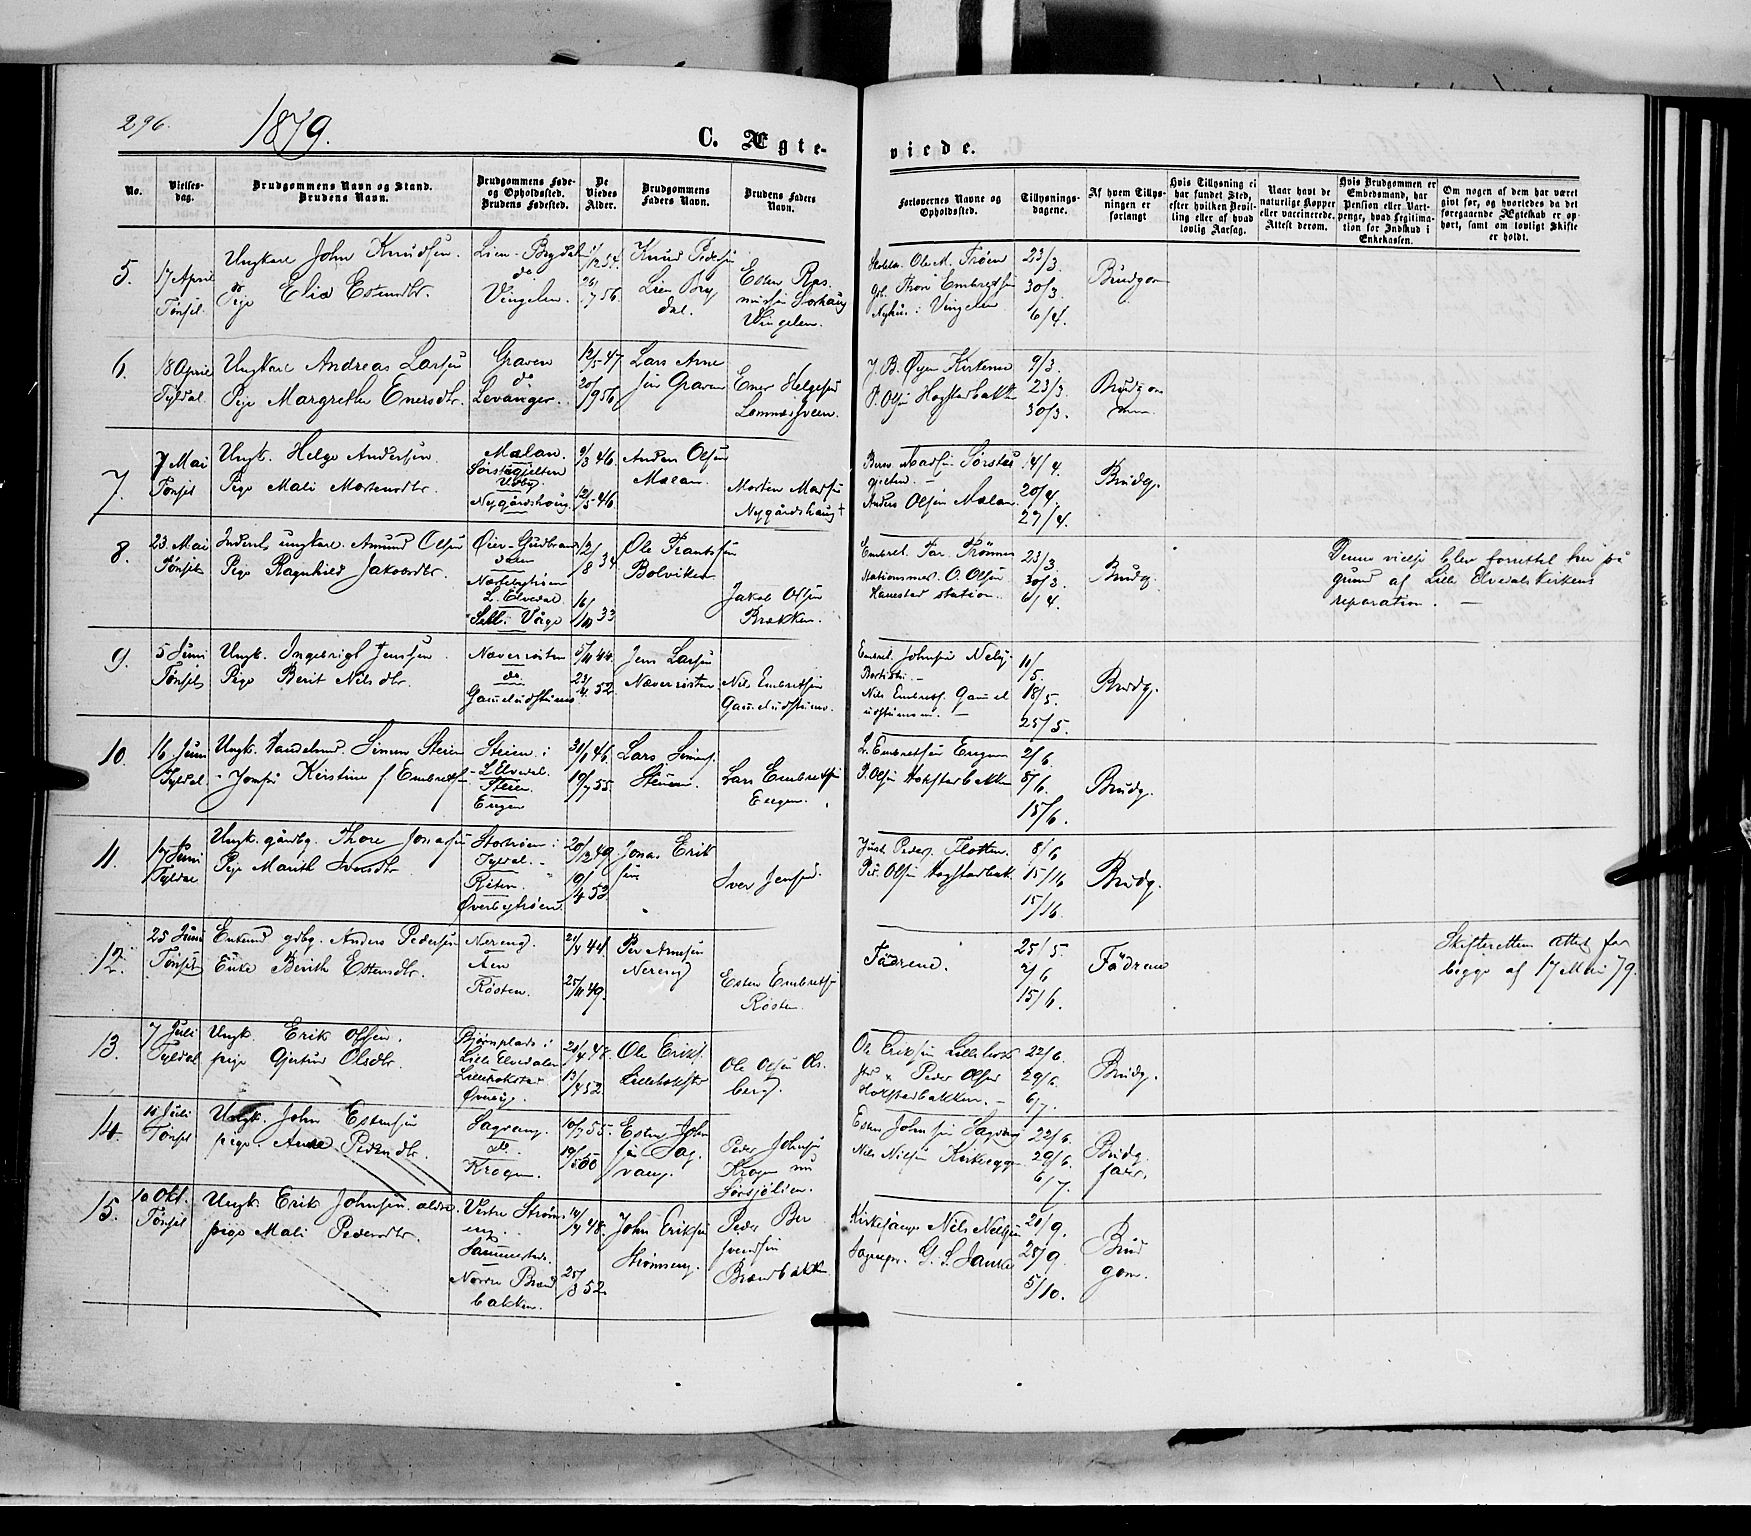 296.
1879.
C. Ægte-
viede.
No.
Vielses-
dag.
Brudgommens Navn og Stand.
Brudens Navn.
Brudgommens Føde-
og Opholdssted.
Brudens Fødested.
De
Viedes
Alder.
Brudgommens
Faders Navn.
Brudens Faders
Navn.
Forlovernes Navne og
Opholdssted.
Tillysnings-
dagene.
Af hvem Tillys-
ningen er
forlangt
Hvis Tillysning ei
har fundet Sted,
efter hvilken Bevil-
ling eller af hvad
lovlig Aarsag.
Naar havt de
naturlige Kopper
eller vaccinerede.
Attest derom.
Hvis Brudgommen er
Embedsmand, har
Pension eller Vart-
penge, hvad Legitima-
tion for Indskud i
Enkekassen.
Om nogen af dem har været
givt før, og hvorledes da det
foregaaende Ægteskab er op-
hørt, samt om lovligt Skifte
er holdt.
5.
17 April
Tønset
Ungkarl John Knudsen.
Pige Elie Estensdtr.
Lien - Brydal
do
Vingelen.
Knud Pedersen
Lien Bry
dal.
Esten Ras-
mussen
Vingelen.
Ole M. Trøen
Thore Embretsen
Nyhus i Vingelen
23/3.
30/3.
6/4.
Brudgom
6.
18 April
Tyldal
Ungkarl Andreas Larsen
Pige Margrethe Enersdtr.
Graven
do
Levanger.
12/5 47
20/9 56
Lars Arne
sen Graven
Ener Helgesen
Lomnessveen.
J. B. Øyen Kirkener
P. Olsen Hogstadbakk
9/3.
23/3.
30/3.
Brudgom
men
7.
7 Mai
Tønset
Ungk. Helge Andersen
Pige Mali Mortensdtr.
Mælan.
Nygårdshoug
9/3 46.
12/5 46.
Anders Olsen
Mælan.
Morten Madsen
Nygårdshaug
Anders Olsen Mælan
14/4.
20/4.
27/4.
Brudg.
8
23. Mai
Tønset
Inderst ungkarl. Amund Olsen
Pige Ragnhild Jakobsdtr.
Øier - Gudbrands
dalen
L. Elvedal
Sell i Våge
12/8 34
16/10 33
Ole Frantssen
Bolviken
Jakob Olsen
Brækken.
Stationsmes. O. Olsen
Hanestad station.
23/3.
30/3.
6/4.
Brudg.
Denne vielse blev forrettet her på
grund af Lille Elvedals kirkens
reparation. —
9.
5 Juni
Tønset
Ungk. Ingebrigt Jenssen.
Pige Berit Nilsdtr.
Næverrøsten
do.
Gameludstumo
5/11 44
23/4. 52.
Jens Larsen
Næverrøsten
Nils Embretsen
Gameludstumo.
Embret Johnsen Neby
Nils Embrets. Gamel
11/5.
18/5.
25/5.
Brudg.
10.
16 Juni
Tyldal
Ungk. Handelsmd. Simen Steien
- Jomfru Kirstine f. Embretsen
Steien i
L. Elvedal.
Steien.
Engen
46.
19/7 55.
Lars Simens.
Steien.
Lars Embretsen
Engen.
L. Embretsen Engen
P. Olsen Hokstadbakken
2/6.
8/6.
15/6.
Brudg.
11.
17 Juni
Tyldal
Ungk. gårdbr. Thore Jonassen
Pige Marith Iversdtr.
Storhøen i
Tyldal.
Øverbyhøen
20/12 49.
19/4 53
Jonas Erik
sen
Iver Jensen.
Peder. Flotten.
Per. Olsen Hogstadbak.
8/6
15/16
15/16.
Brudg.
12.
25 Juni
Tønset
Enkemd gdbr. Anders Pedersen
Enke Berith Estensdtr.
Nereng.
Aen
Røsten.
21/4 44.
25/11 49.
Per Arnesen
Nereng
Esten Embretsen
Røsten
Fædrene.
25/5.
2/6
15/6.
Fædrene
Skifterettens attest for
begge af 17 Mai 79.
13.
7 Juli
Tyldal
Ungk. Erik Olsen.
pige Gjertrud Olsdtr.
Bjørnplads i
Lille Elvedalen
Øverby.
13/4 52.
Ole Eriks.
Lillehokster
Ole Olsen Ols
berg.
Ole Eriksen Lillehok
ster " Peder Olsen
Hokstadbakken. -
22/6.
29/6.
6/7.
Brudg.
14.
Juli
Tønset
Ungk. John Estensen
pige Anne Pedersdtr.
Sagvang.
do.
Krogen.
10/7 55.
Esten John
sen Sag
vang.
Peder Johnsen
Krogen nu
Esten Johnsen Sagvang
Nils Nilsen Kirkebygge
22/6.
29/6.
6/7.
Brudg
fader.
15.
10 Okt.
Tønset
Ungk. Erik Johnsen. ældre.
pige Mali Pedersdtr.
Vestre Strøms
eng.
Sammesteds.
Nordre Brænd
bakken.
14/4 48.
25/3 52.
John Eriksen
Strømseng.
Peder Ber
svendsen
Brændbakken
Kirkesanger Nils Nielsen
Sognepr. G. S.
21/9.
28/9.
5/10.
Brud
gom.